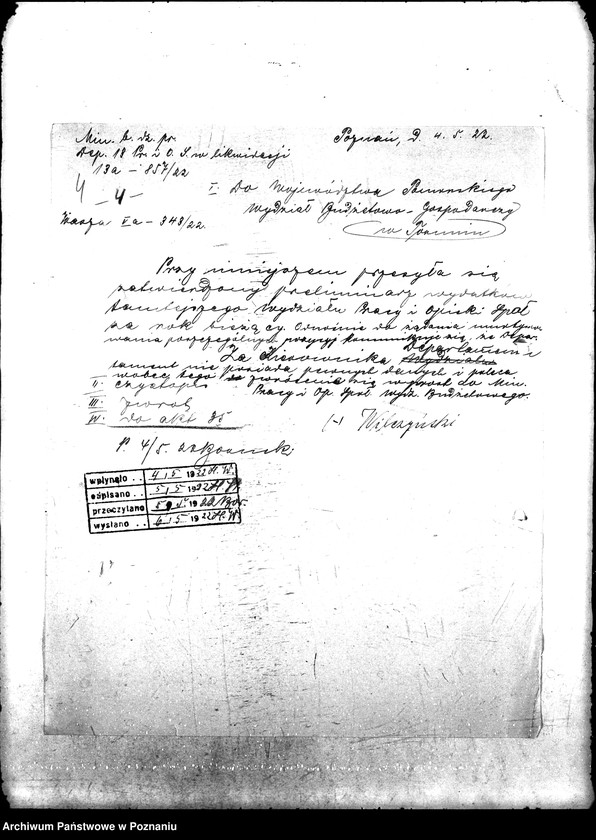 Min. b. dz. pr.
Dep. 18 Pr. i O. S. w likwidacji
13a - 857/22
Poznań, D. 4. 5. 22.
I. Do Województwa Pomorskiego
Wydział Budżetowo-Gospodarczy
w Toruniu
Va - 343/22.
Przy niniejszem przesyła się
zatwierdzony preliminarz wydatków
tamtejszego Wydziału Pracy i Opieki Społ
za rok bieżący. Odnośnie do żądania
poszczególnych pozycyj komunikuje się, że Depar-
tament nie posiada pewnych danych i poleca
wobec tego zwrócenie się wprost do Min.
Pracy i Op. Społ. Wydz. Budżetowego.
Za Kierownika Departamentu
II. czystopis
III.
IV. do akt
(-) Wilczyński
4/5.
wpłynęło . . 4 . 5 1922 H. W.
odpisano . . 5 . 5 1922 H. W.
przeczytano 5 . 5 1922
wysłano . . 6 . 5 1922 H. W.
Archiwum Państwowe w Poznaniu